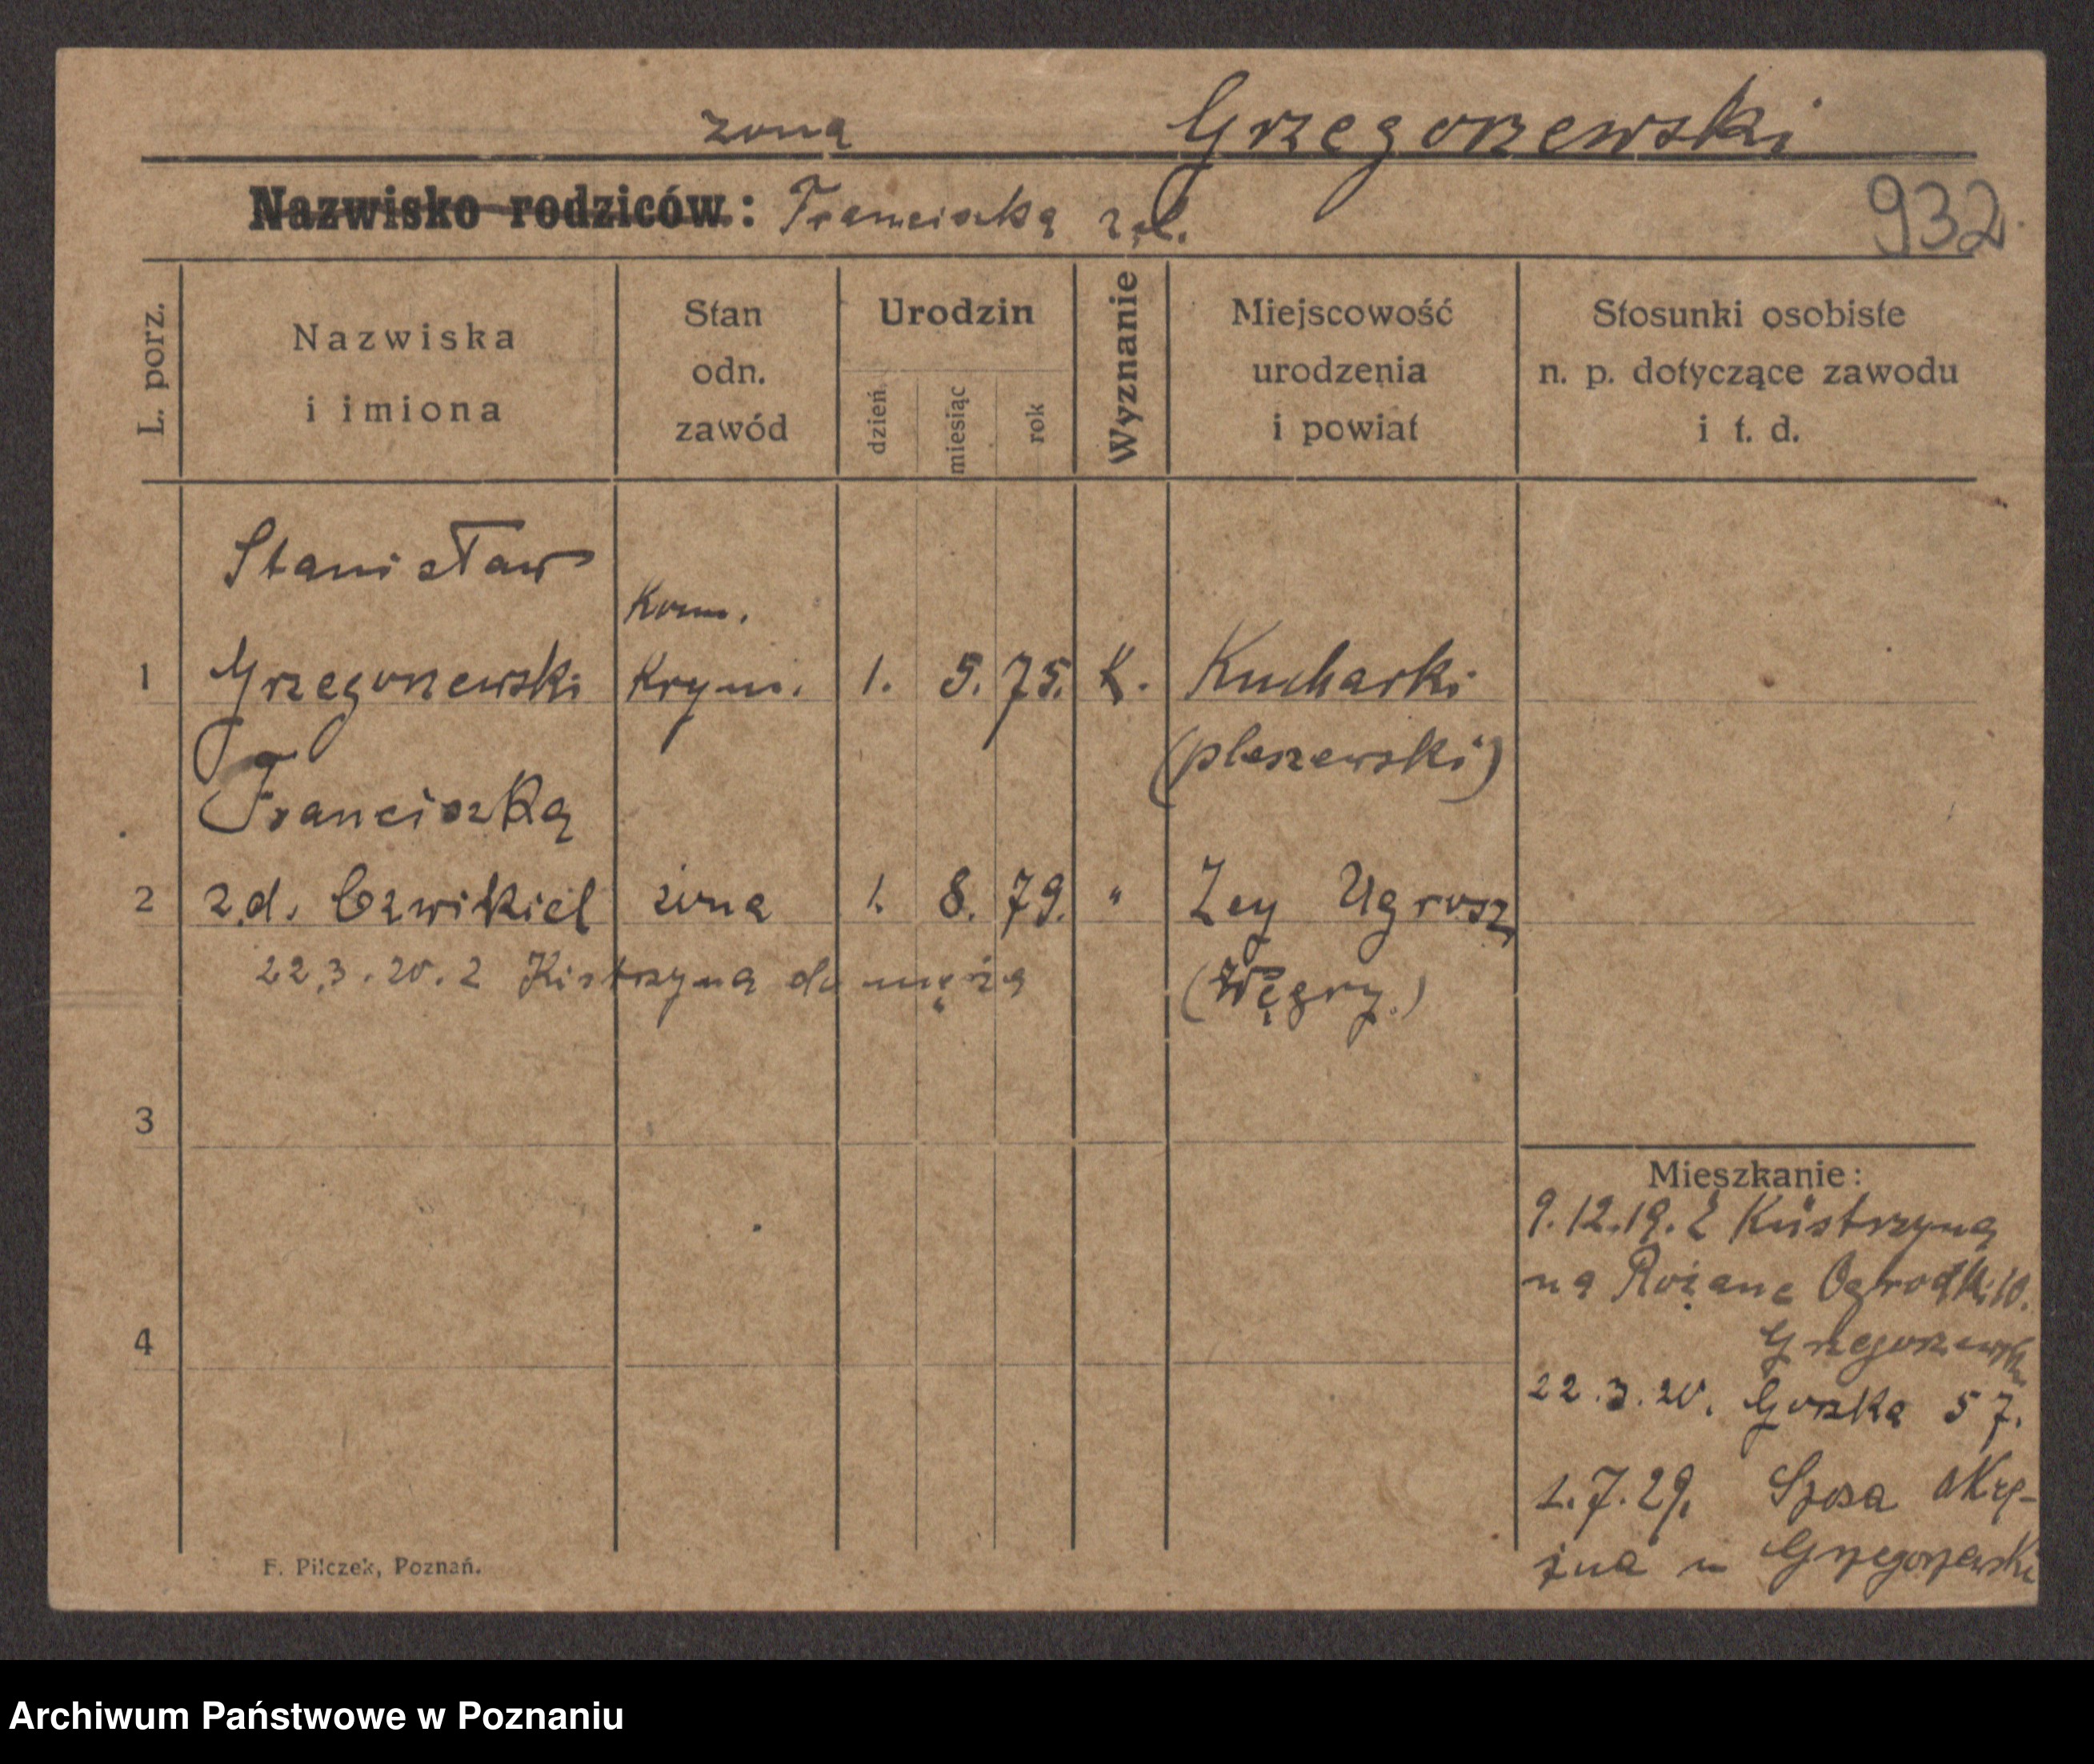 żona Grzegorzewski
Nazwisko rodziców: Franciszka z.d.
932
L. porz.
Nazwiska
i imiona
Stan
odn.
zawód
Urodzin
dzień
miesiąc
rok
Wyznanie
Miejscowość
urodzenia
i powiat
Stosunki osobiste
n. p. dotyczące zawodu
i t. d.
Stanisław
Kom.
1 Grzegorzewski Krym. 1. 5. 75. K. Kucharki
(pleszewski)
Franciszka
2 z.d. Czwikiel żona 1. 8. 79. " Zey Ugrosz
22.3.20. z Kistrzyna do męża
(Węgry.)
3
4
Mieszkanie:
9.12.19. z Küstrzyna
na Różane Ogrodki 10.
Grzegorzewski
22.3.20. Gorzka 57.
1.7.29. Szosa Okrę-
żna u Grzegorzewski
F. Pilczek, Poznań.
Archiwum Państwowe w Poznaniu